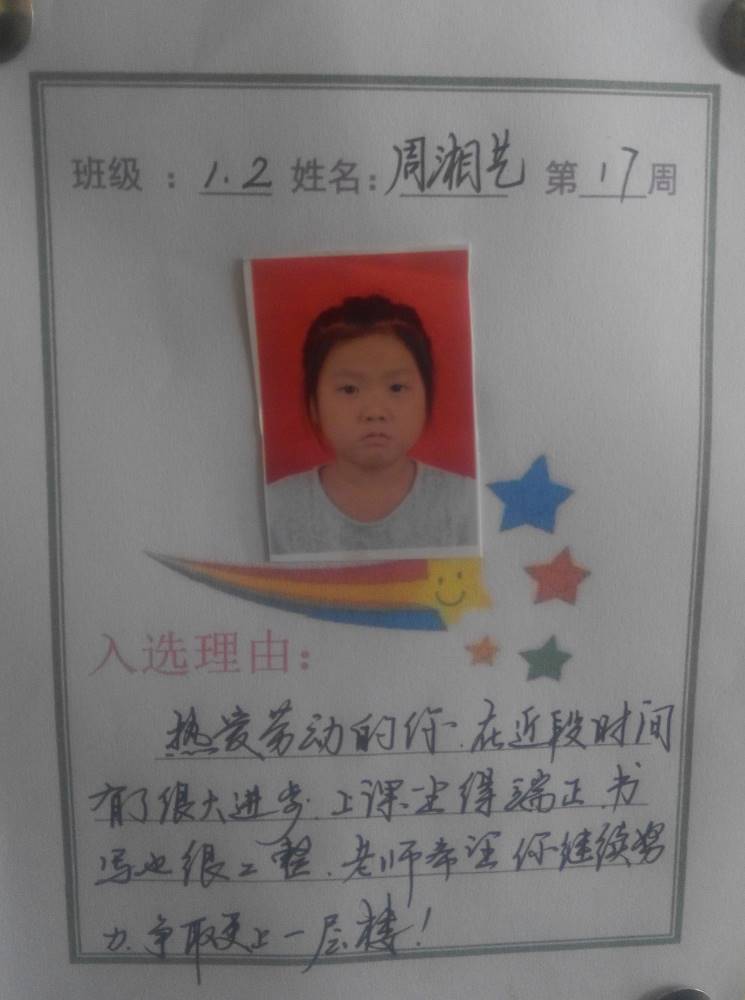 班级：1.2 姓名：周湘艺 第17周
入选理由：
热爱劳动的你，在近段时间
有了很大进步，上课坐得端正，书
写也很工整，老师希望你继续努
力，争取更上一层楼！